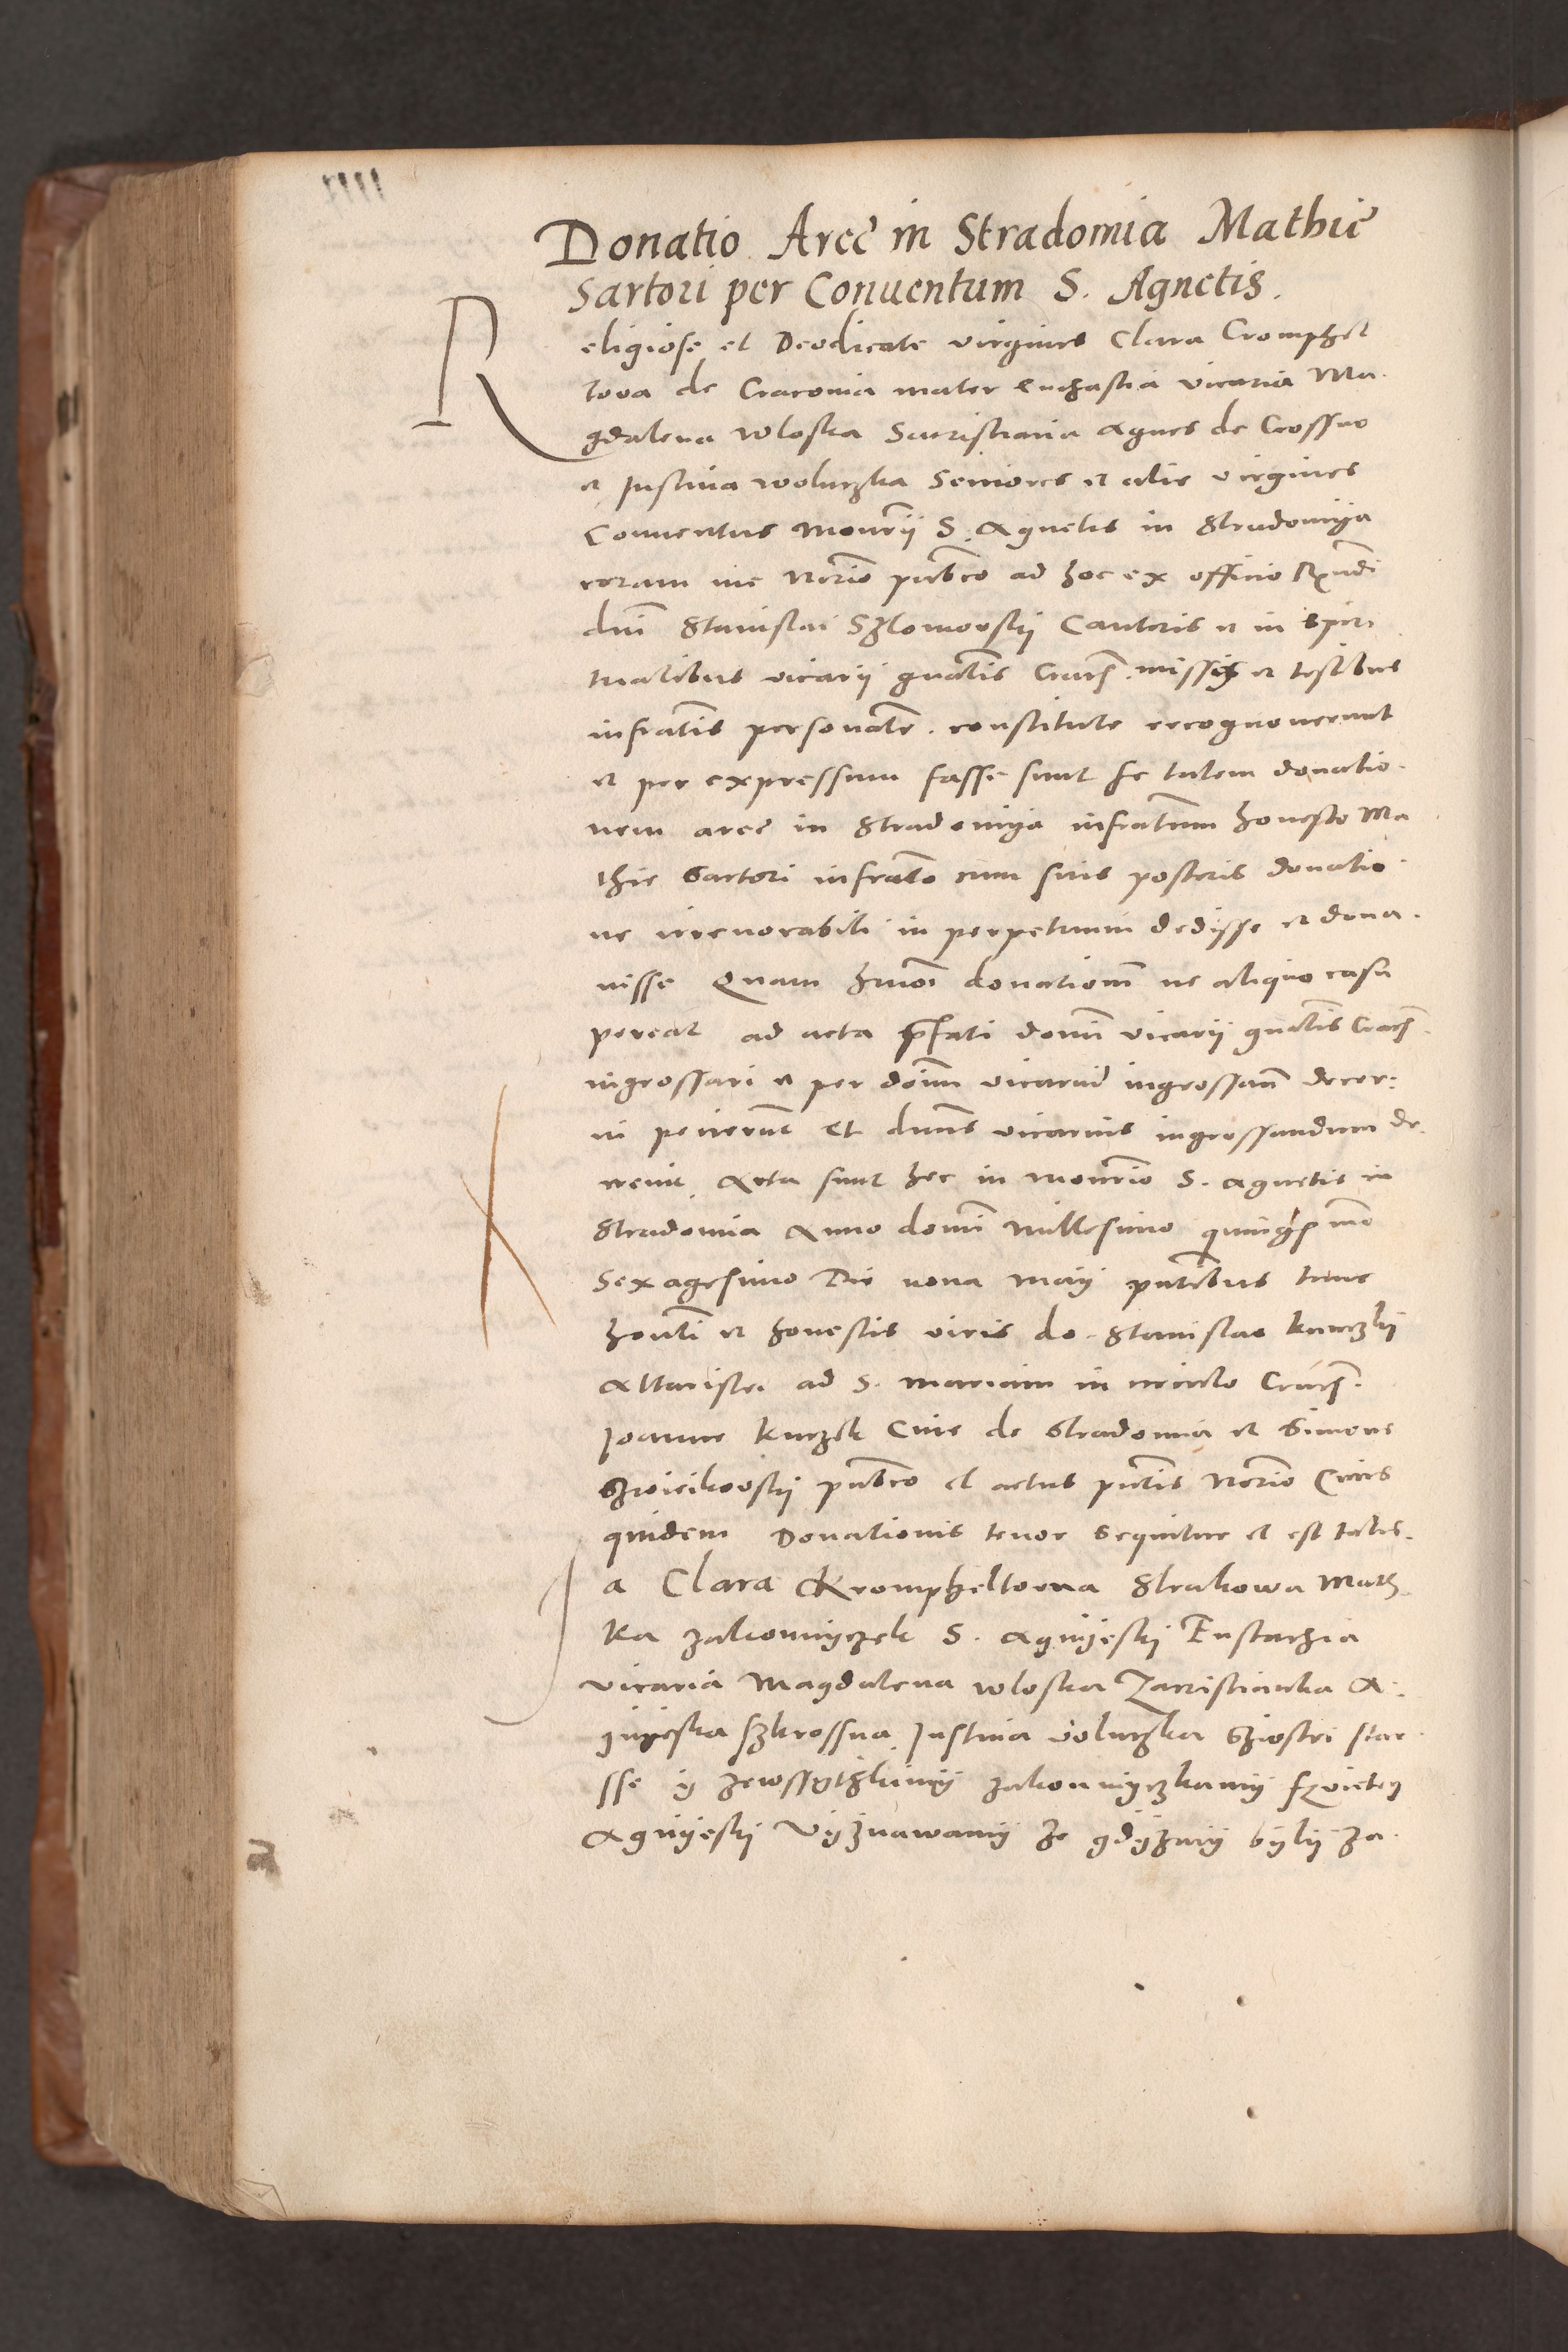 Donatio Areę in Stradomia Mathię
Sartori per Conuentum S. Agnetis.
Religiose et Deodicate virgines Clara Cromphel
towa de Cracouia mater Euchastia vicaria Ma
gdalena Wloska Sacristiana Agnes de Crossno
et Justina Woluczka Seniores et alie virgines
Conuentus Monrÿ S. Agnetis in Stradomÿa
coram me Norio pubco ad hoc ex officio Rdndi
dni Stanislai Szlomowskÿ Cantoris et in spiri
tualibus vicarÿ gnalis Cracs. missis et testibus
infratis personalr. constitute recognouerunt
et per expressum fasse sunt se talem donatio
nem areę in Stradomÿa infratam honesto Ma
thie Sartori infrato cum suis posteris donatio
ne irreuocabili in perpetuum dedisse et dona
uisse Quam hmoi donationem ne aliquo casu
pereat ad acta pfati domi vicarÿ gnalis Cracs.
ingrossari et per doim vicariu ingrossari decer:
ni petierunt Et dnus vicarius ingrossandum de
creuit. Acta sunt hec in Monrio S. Agnetis in
Stradomia Anno domi Millesimo quingsmo
Sexagesimo Die nona Maÿ pntibus tunc
honli et honestis viris do. Stanislao Kunczlÿ
Altarista ad S. Mariam in circulo Cracs.
Joanne Kuczek Ciue de Stradomia et Simone
pubco et actus pntis Norio Cuius
quidem Donationis tenor sequitur et est talis.
Ja Clara Krompheltowa Strakowa Mat
ka zakonnÿczek S. Agnÿeskÿ Eustachia
vicaria Magdalena Wloska Zacristianka A
gnÿeska szkrossna Justina Voluczka Sziostri star
sse ÿ zewssÿthkimÿ zakonnÿczkamÿ szwieteÿ
Agnÿeskÿ Vÿznawamÿ ze gdÿzmÿ bÿlÿ za